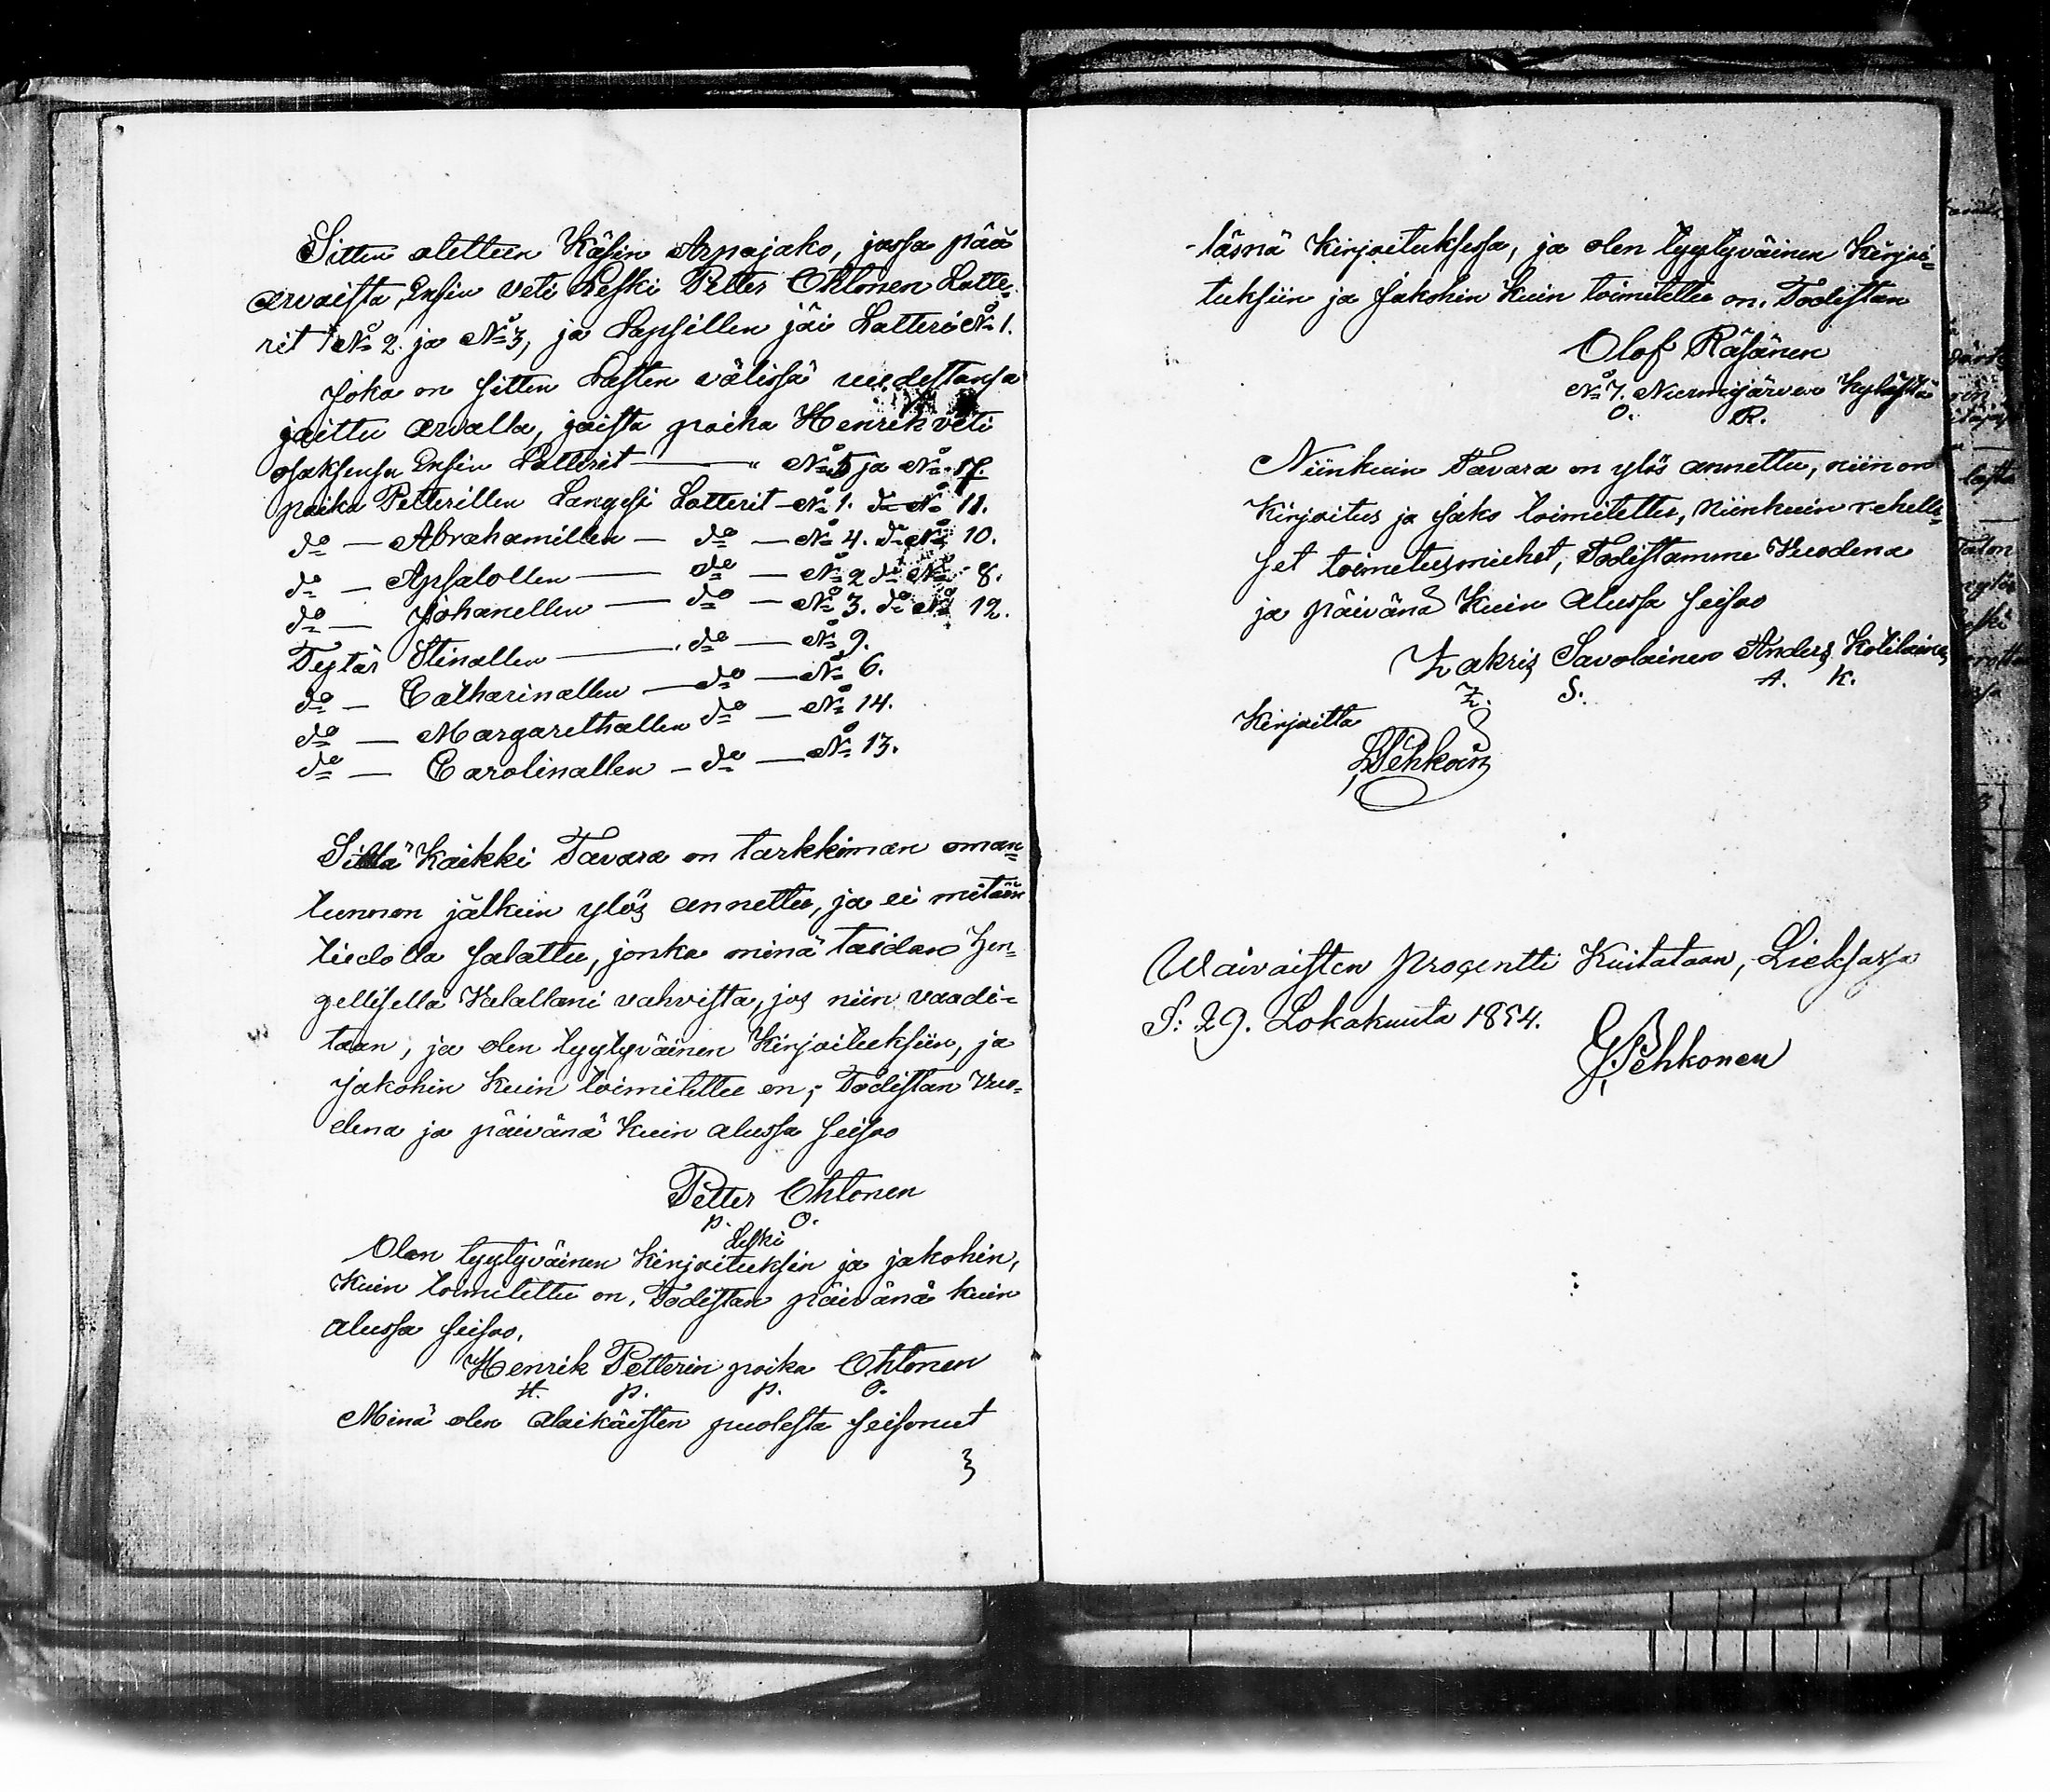 Sitten otettiin Käsin Arpajako, jossa pää
arvoista, Ensin veti Leski Petter Ohtonen Lotte-
rit No 2. ja No 3, ja Lapsillen jäi Lotteri No 1.
Joka on sitten Lasten välissä uudestansa
jaittu arvalla, joista poika Henrik veti
osaksensa Ensin Lotterit — " No 5 ja No 7.
poika Petterillen Langesi Lotterit — No 1. do No 11.
do — Abrahamillen — do — No 4. do No 10.
do — Apsalollen — do — No 2 do No 8.
do — Johanellen — do — No 3. do No 12.
Tytär Stinallen — do — No 9.
do — Catharinallen — do — No 6.
do — Margarethallen do — No 14.
do — Carolinallen — do — No 13.
Sillä Kaikki Tavara on tarkkiman oman-
tunnon jälkein ylös annettu, ja ei mitään
tiedolla salattu, jonka minä taidan hen-
gellisellä Valallani vahvista, jos niin vaadi-
taan, ja olen tyytyväinen Kirjoituksiin, ja
jakohin kuin toimitettu on; Todistan Vuo-
dena ja päivänä kuin alussa seisoo
Petter Ohtonen
P. O.
Leski
Olen tyytyväinen Kirjoituksin ja jakohin,
Kuin toimitettu on, Todistan päivänä kuin
alussa seisoo.
Henrik Petterin poika Ohtonen
H. P. p. O.
Minä olen alaikäisten puolesta seisonut
-läsnä Kirjoituksessa, ja olen tyytyväinen Kirjoi-
tuksiin ja Jakohin kuin toimitettu on. Todistan
Olof Räsänen
No 7. Nurmijärven Kylästä
O. R.
Niinkuin Tavara on ylös annettu, niin on
Kirjoitus ja Jako toimitettu, Niinkuin rehelli-
set toimitusmiehet, Todistamme Vuodena
ja päivänä kuin alussa seisoo
Zakris Savolainen Anders Kotilainen
Z. S. A. K.
Kirjoitta
Pehkoin
Waivaisten Procentti Kuitataan, Lieksassa
S: 29. Lokakuuta 1854.
G Pehkonen